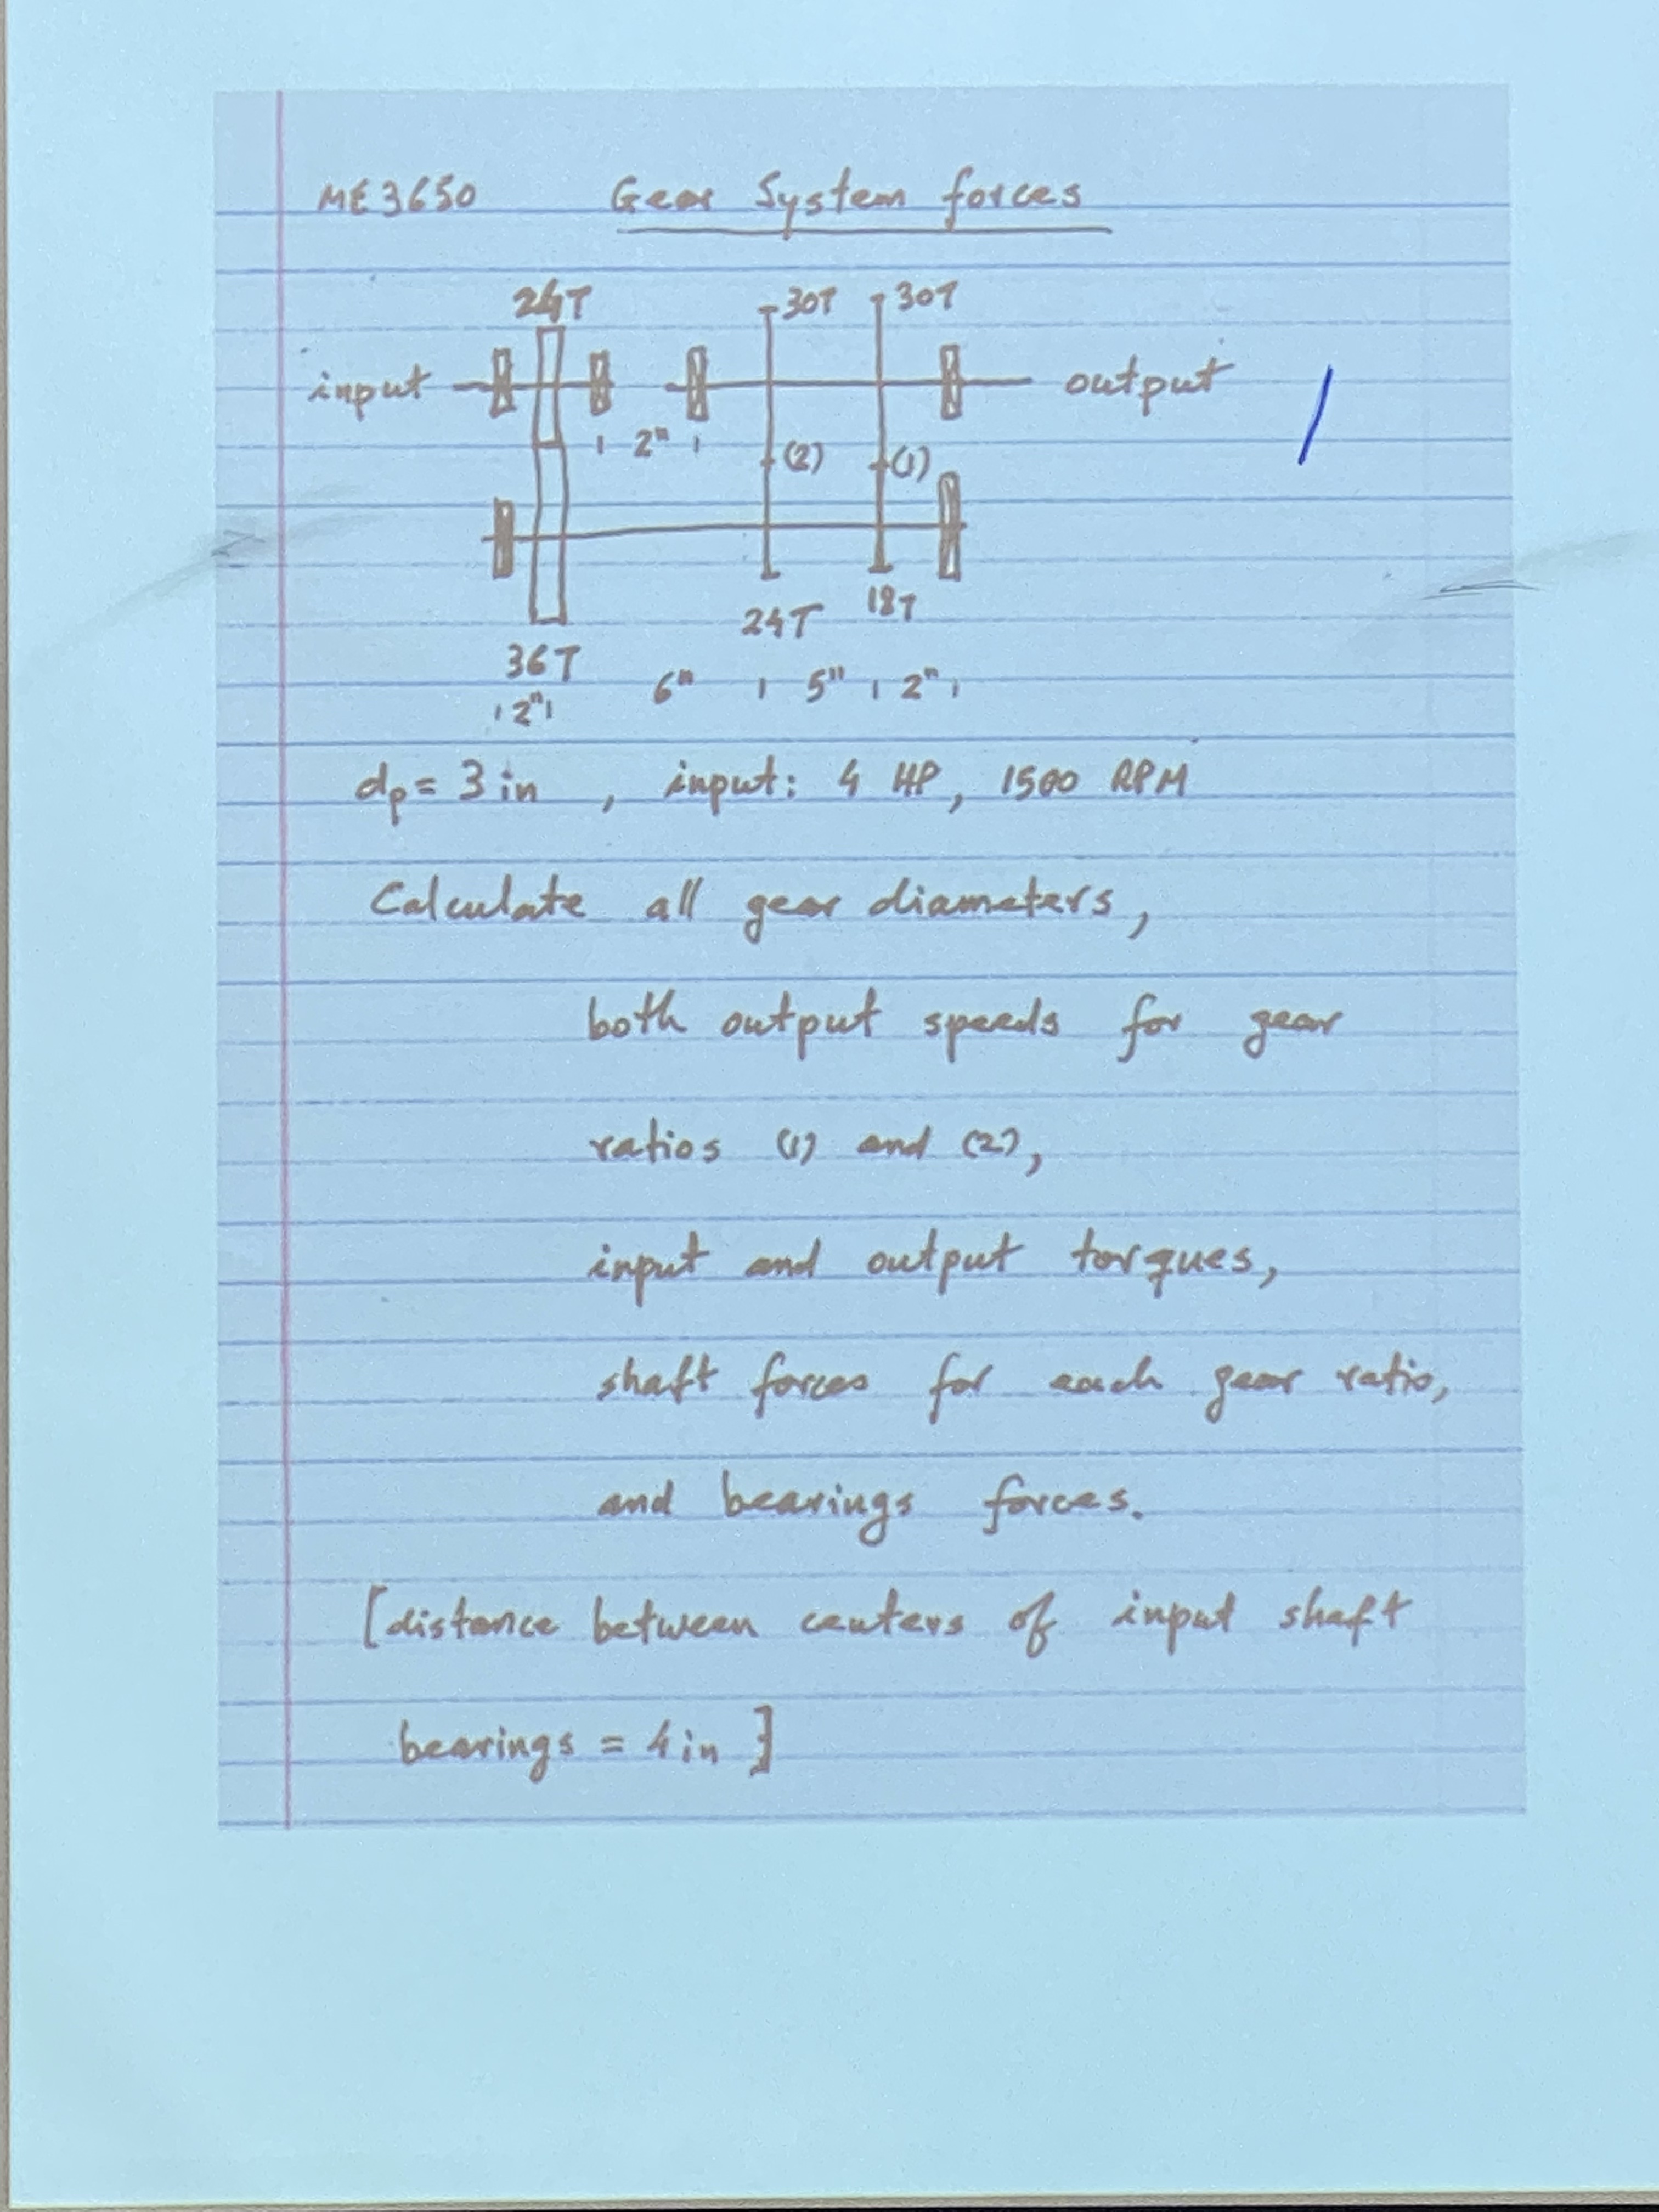 ME3650 Gear System forces
24T 30T 30T
input output
2" (2) (1)
24T 18T
36T
2" 6" 5" 2"
dp = 3 in , input: 4 HP, 1500 RPM
Calculate all gear diameters,
both output speeds for gear
ratios (1) and (2),
input and output torques,
shaft forces for each gear ratio,
and bearings forces.
[distance between centers of input shaft
bearings = 4 in ]